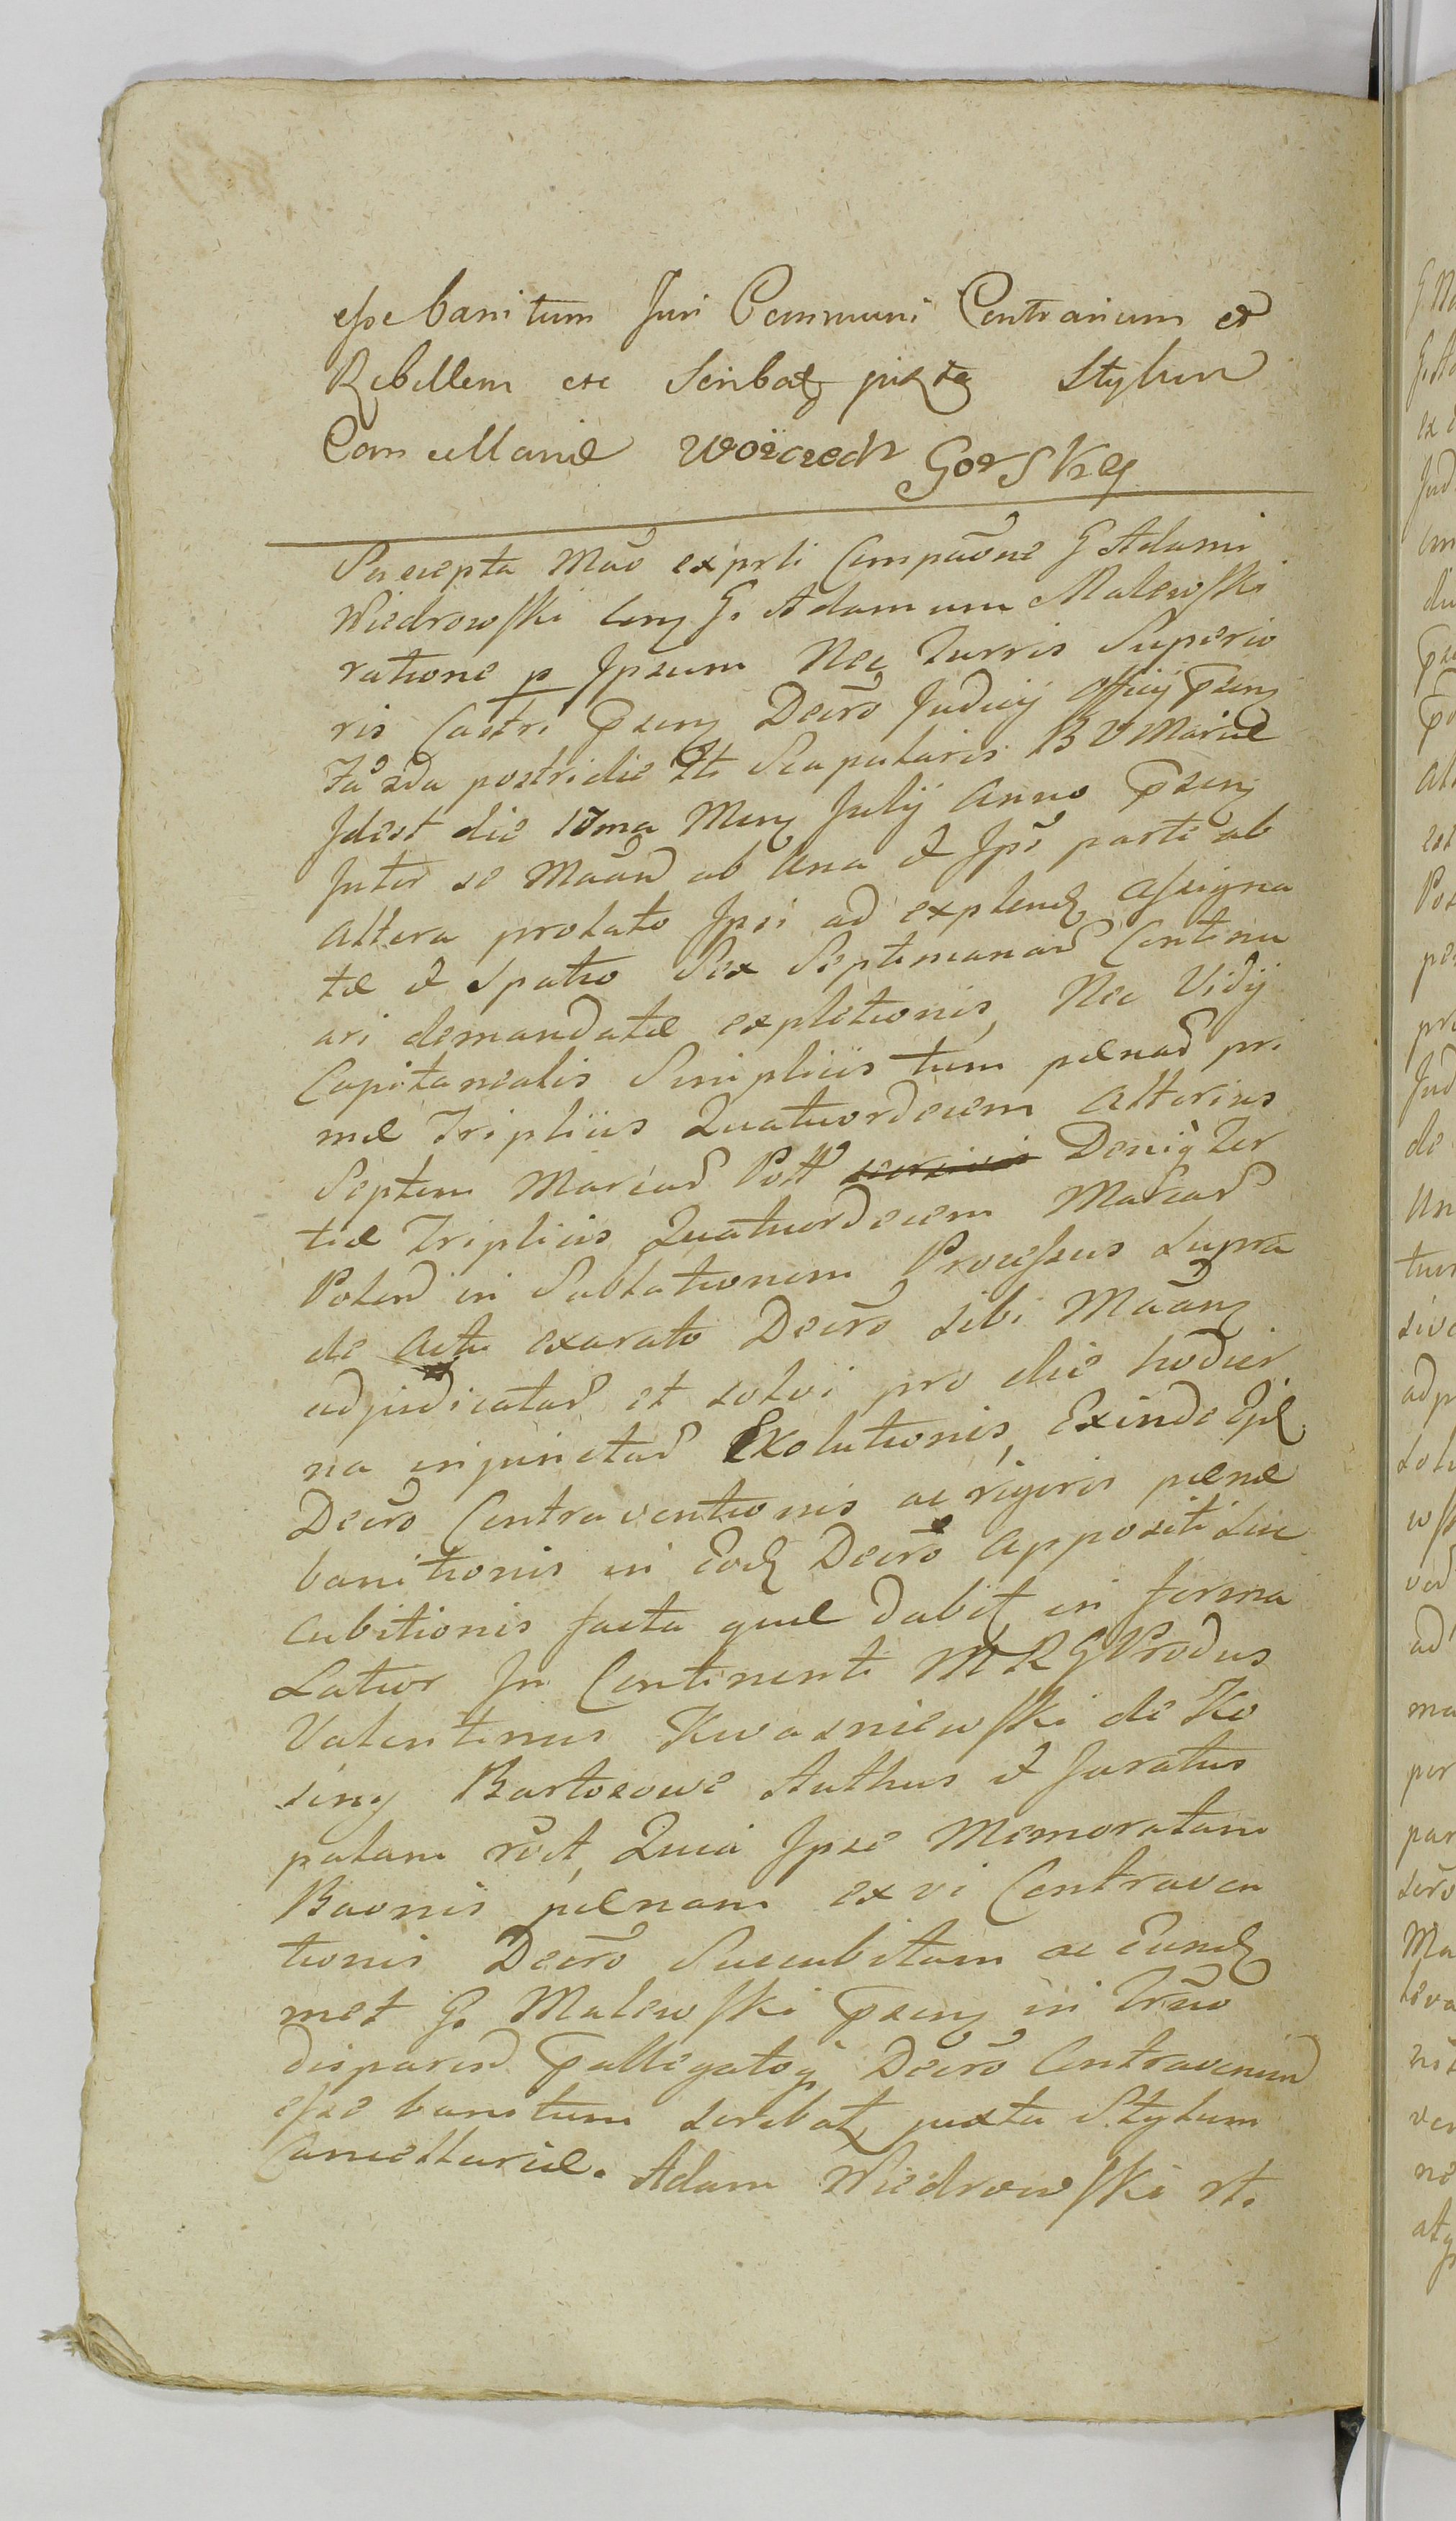 esse banitum Juri Communi Contrarium et
Rebellem etc Scribat juxta Stylum
Cancellariæ Woicech Gorskey
Percepta Mão ex prti Compaõne G Adami
Wiedrowski Cong G. Adamum Malewski
ratione p Ipsum Neq Turris Superio
ris Castri Pseng Decrõ Judicij Officij Pseng
Fa 2da postridie fti Scapularis B V Mariæ
Idest die 17ma Meng Julij Anno Pseng
Inter se Maãnd ab Una & Ipõ parte ab
Altera prolato Ipsi ad explend Assigna
tæ & Spatio Sex Septimanar Continu
ari demandatæ expletionis, Nec Vidij
Capitanealis Simpliciis tum pænar pri
mæ Tripliciis Quatuordecim Alterius
Septem Marcar Poll Deniq Ter
tiæ Tripliciis Quatuordecim Marcar
Polend in Sublationem Processus Supra
de Actu exarato Decrõ sibi Maãng
adjudicatar et solvi pro die hodier
na injunctar Exolutionis, Exinde Ejd
Decrõ Contraventionis ac rigoris pænæ
banitionis in Eod Decrõ Appositi Suc
cubitionis facta quæ dabit in forma
Latior In Continenti M R G Produs
Valentinus Kwasniewski de Ko
siny Bartosowe Authus & Juratus
palam rõt, Quia Ipse Memoratam
Baõnis pænam ex vi Contraven
tionis Decrõ Succubitam ac Eund
met G. Malewski Pseng in Trño
disparend Pallegatoq Decrõ Contravenien
esse banitum scribat juxta Stylum
Cancellariæ. Adam Wiedrowski rt.